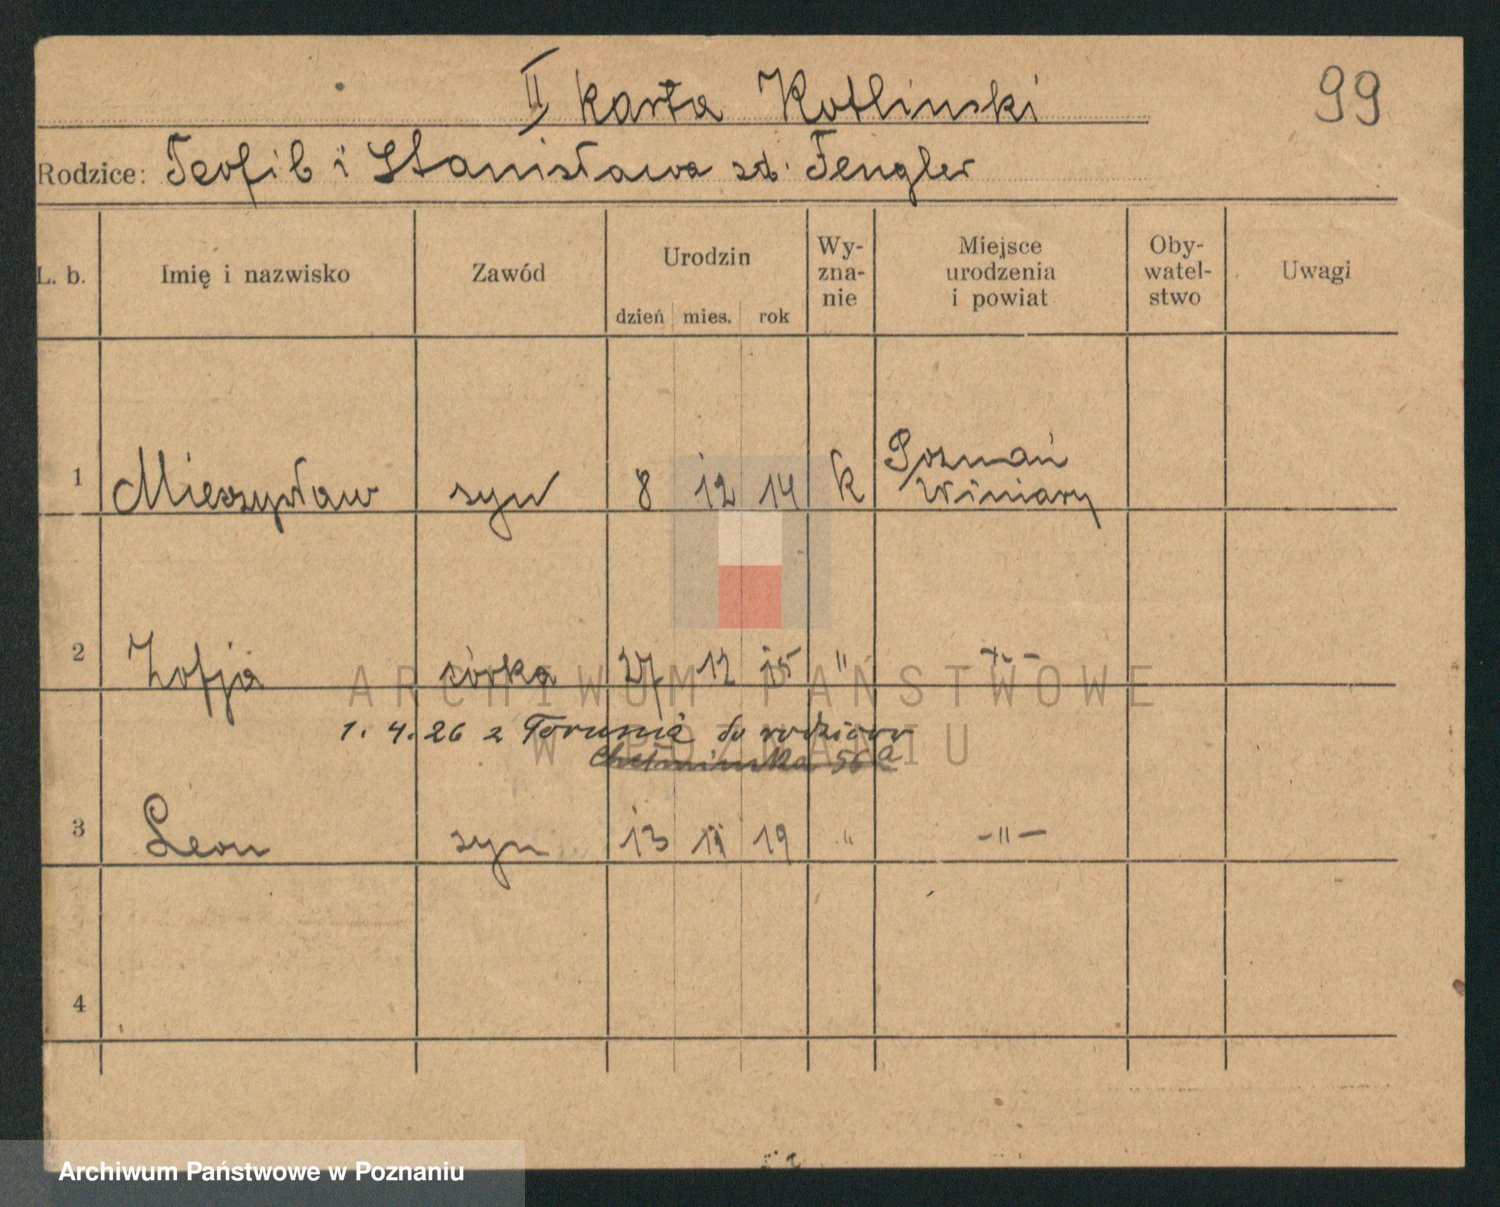 II karta Kotlinski
99
Rodzice: Teofil i Stanisława zd. Fengler
L. b. Imię i nazwisko Zawód Urodzin dzień mies. rok Wy-zna-nie Miejsce urodzenia i powiat Oby-watel-stwo Uwagi
1 Mieczysław syn 8 12 14 k Poznań
Winiary
2 Zofja córka 27 12 15 " -"-
1. 4. 26 z Torunia do rodziców
Chełmińska 56a
3 Leon syn 13 11 19 " -"-
4
ARCHIWUM PAŃSTWOWE
W POZNANIU
Archiwum Państwowe w Poznaniu